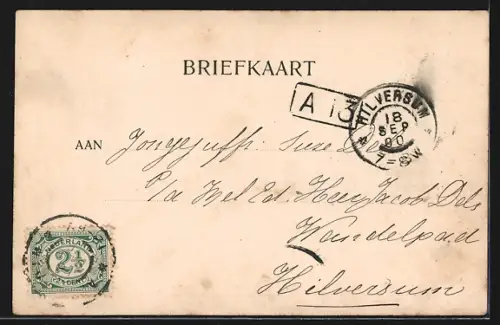 BRIEFKAART
A 13
HILVERSUM
18
SEP
00
7-8 V
AAN Jongejuffr. Suze Dels
P/a Wel Ed. Heer Jacob Dels
Wandelpad
Hilversum
NEDERLAND
2½
CENT